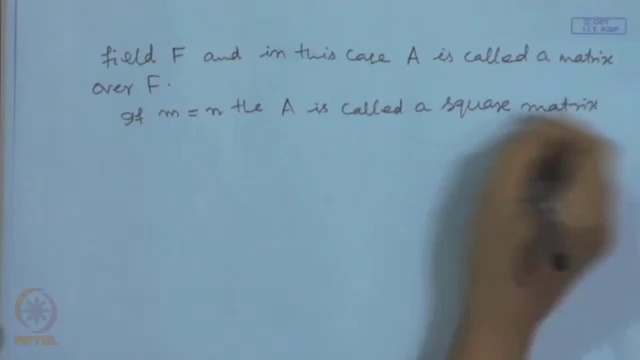 field F and in this case A is called a matrix
over F.
If m = n the A is called a square matrix
NPTEL